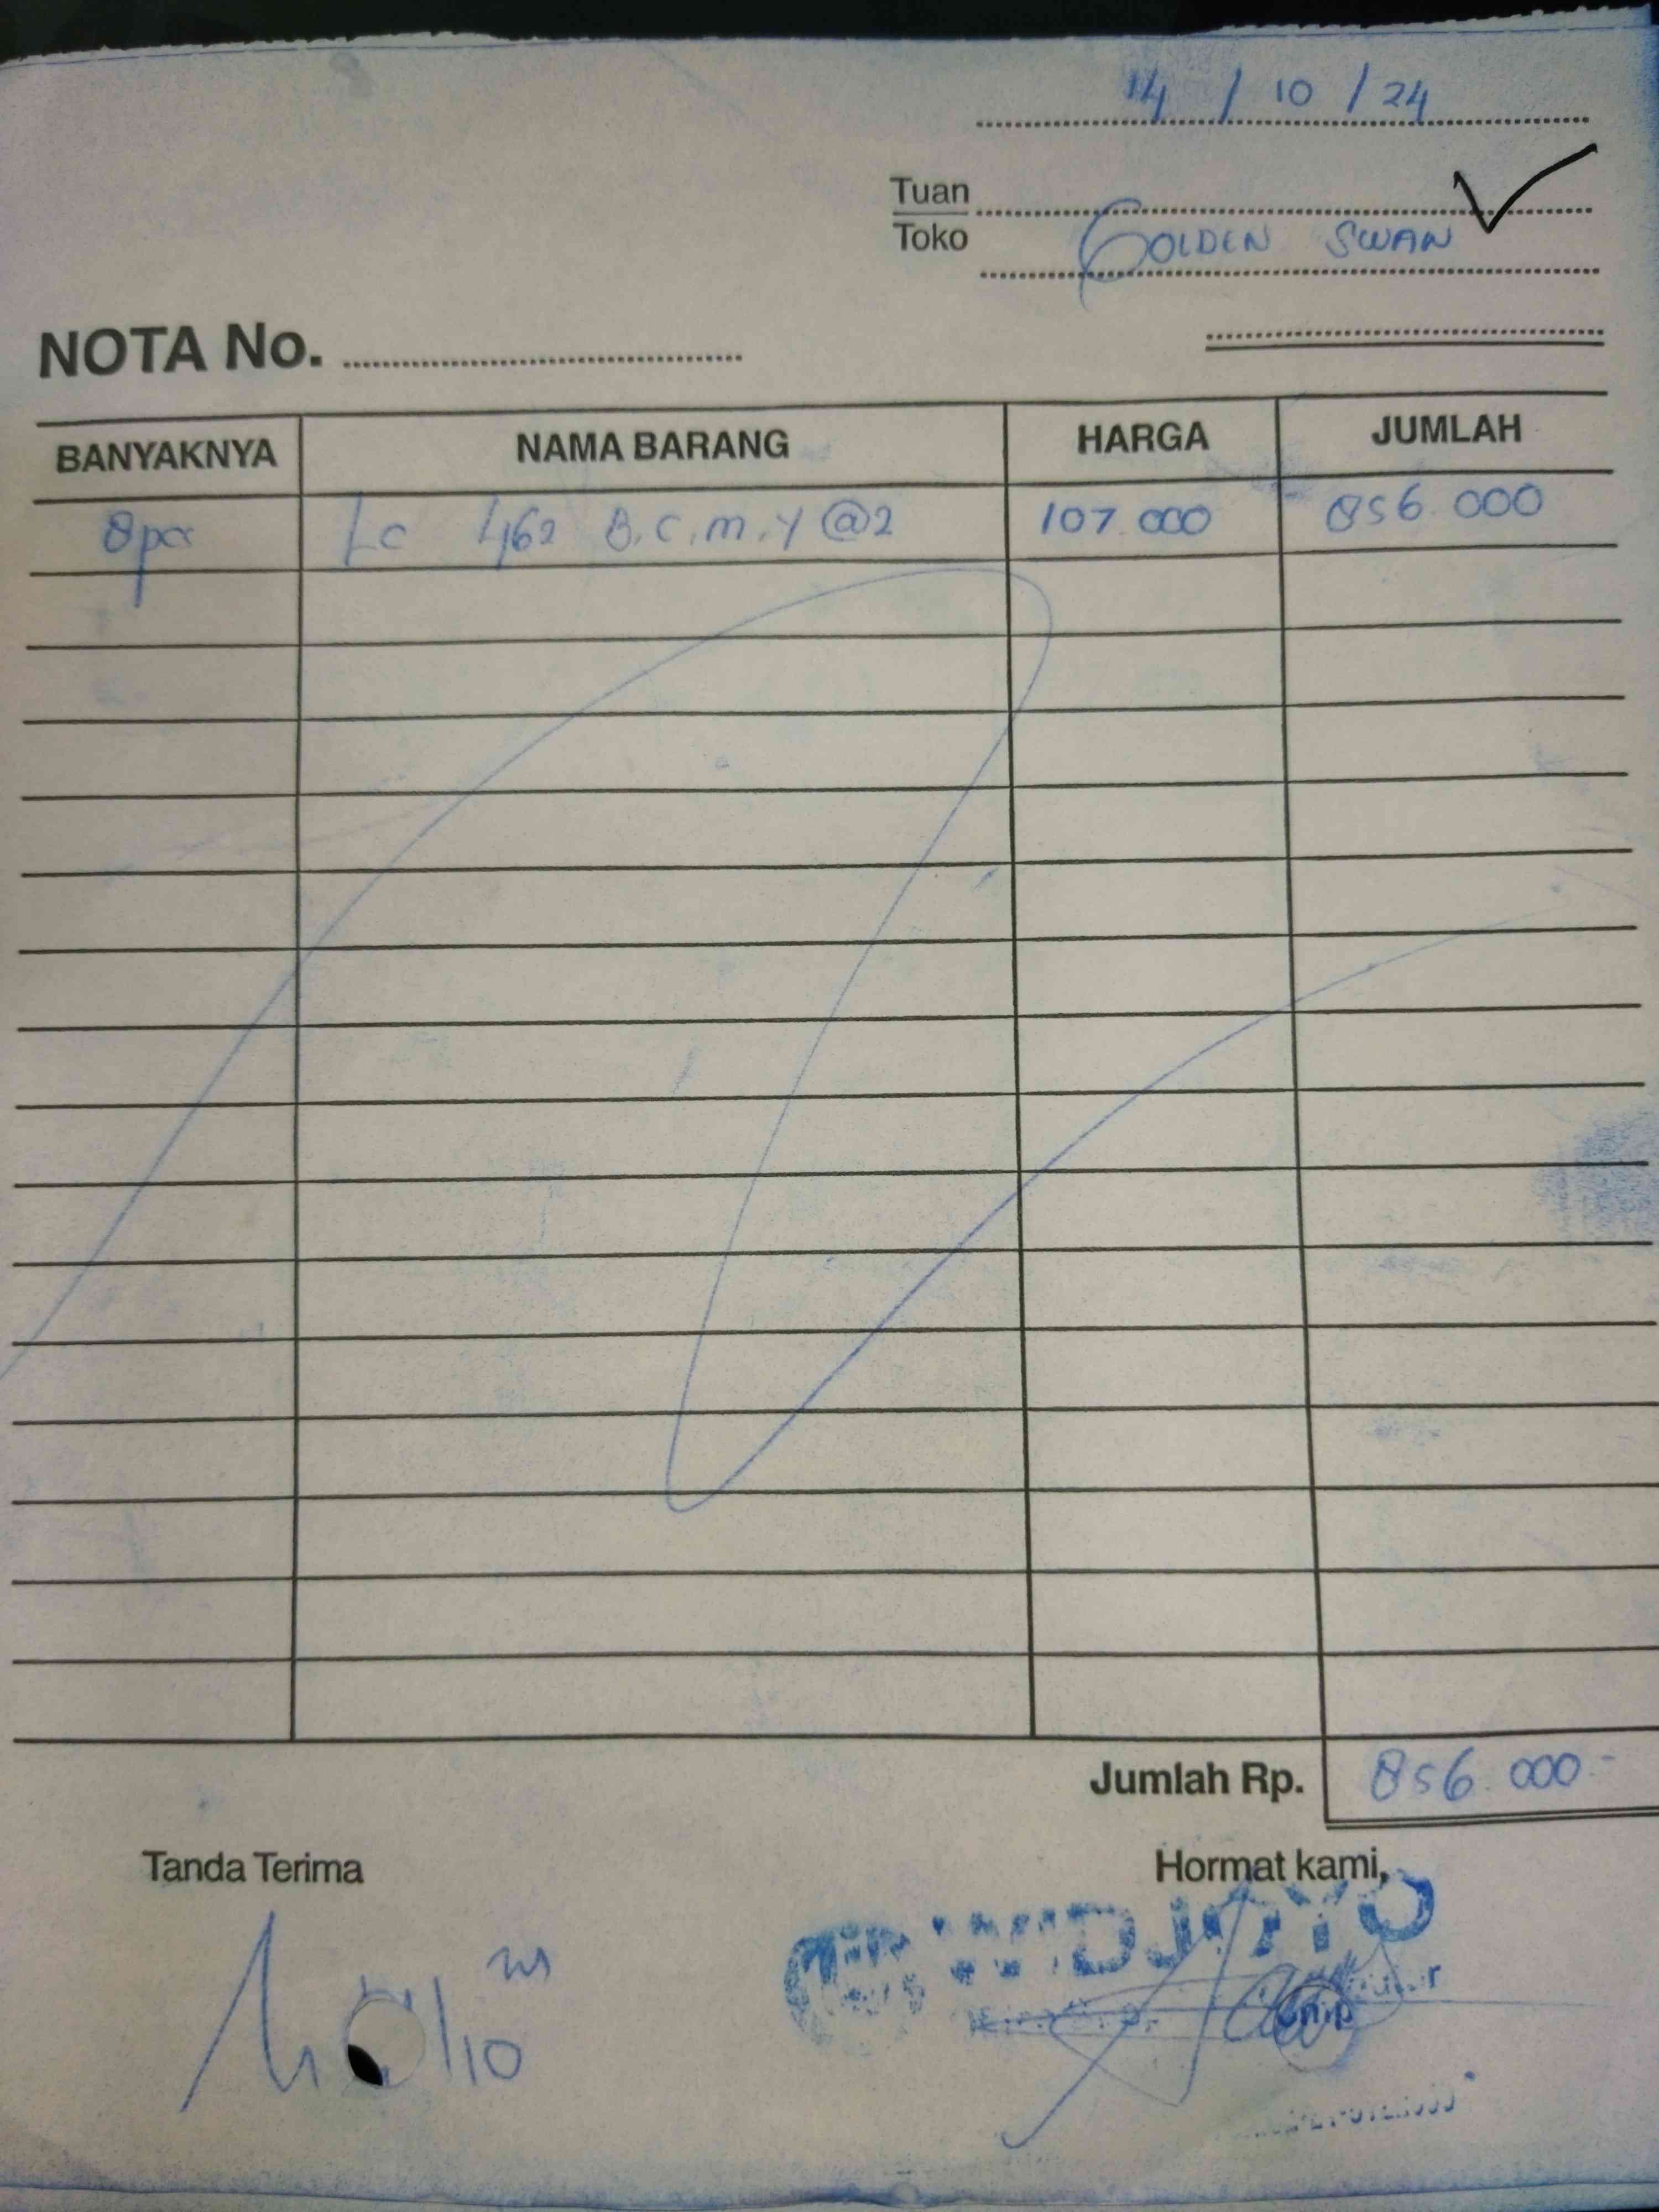 14 / 10 / 24
Tuan
Toko GOLDEN SWAN
NOTA No.
BANYAKNYA NAMA BARANG HARGA JUMLAH
8 pcs Lc 462 B.C.M.Y @2 107.000 856.000
Jumlah Rp. 856.000-
Tanda Terima Hormat kami,
WIDJOYO